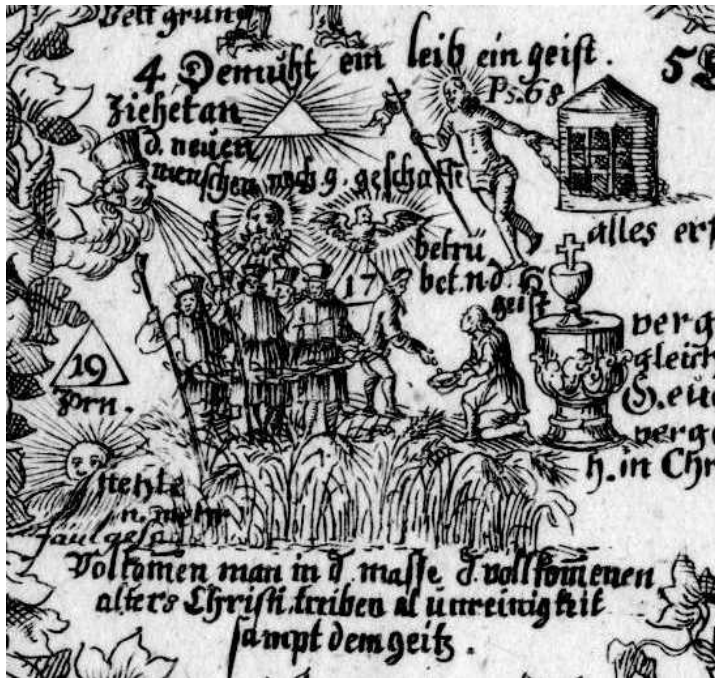 Welt grun
4 Demüht ein leib ein geist.
5
Ps. 68
Ziehet an
d. neuen
menschen nach g. geschaffē
alles erf
betrü
bet. n. d. h.
geist
17
verg
gleich
G. euc
verge
h. in Chr
19
Prn.
stehle
n. mehr
faul gesch
Volkomen man in d masse d vollkomenen
alters Christi, treiben al unreinigkeit
sampt dem geitz.